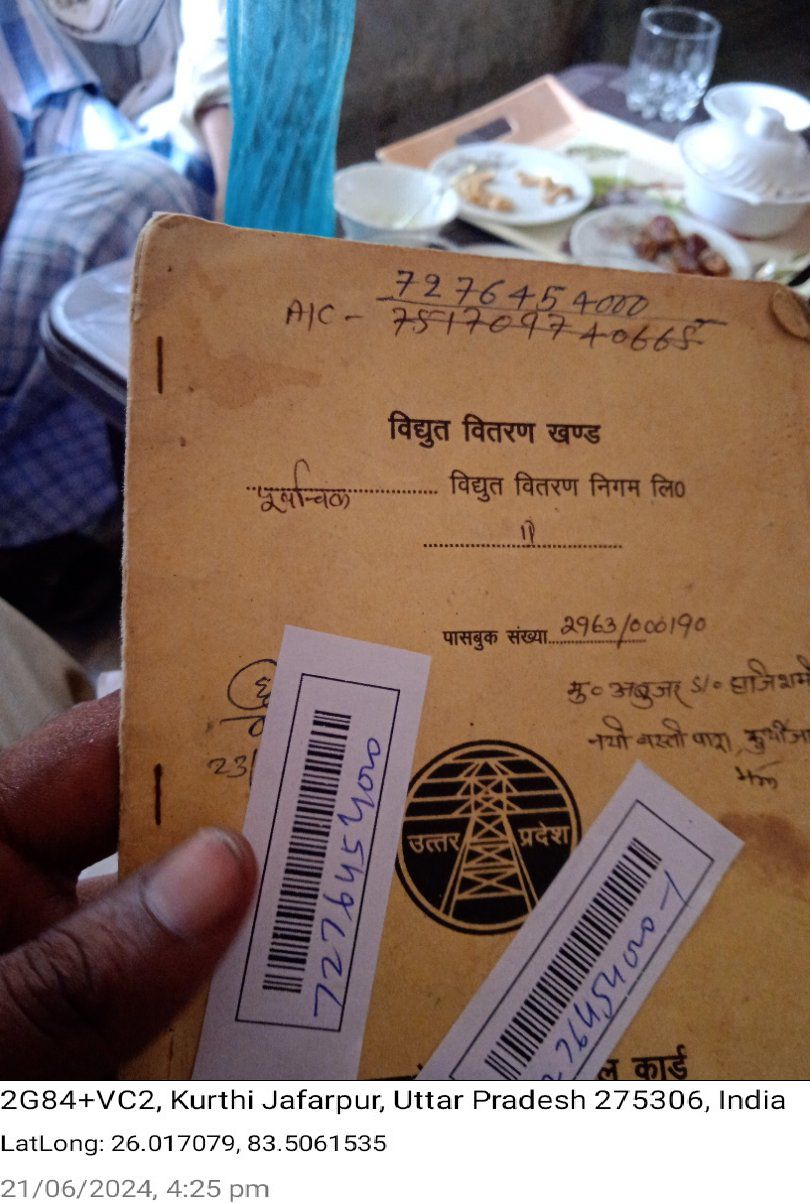 7276454000
A/C - 751709740665
विद्युत वितरण खण्ड
पूर्वांचल विद्युत वितरण निगम लि०
11
पासबुक संख्या 2963/000190
मु० अबुजर S/० हाजि शमी
नयी बस्ती पारा कुर्थी जा
मऊ
23/
उत्तर प्रदेश
7276454000
276454000-1
ल कार्ड
2G84+VC2, Kurthi Jafarpur, Uttar Pradesh 275306, India
LatLong: 26.017079, 83.5061535
21/06/2024, 4:25 pm